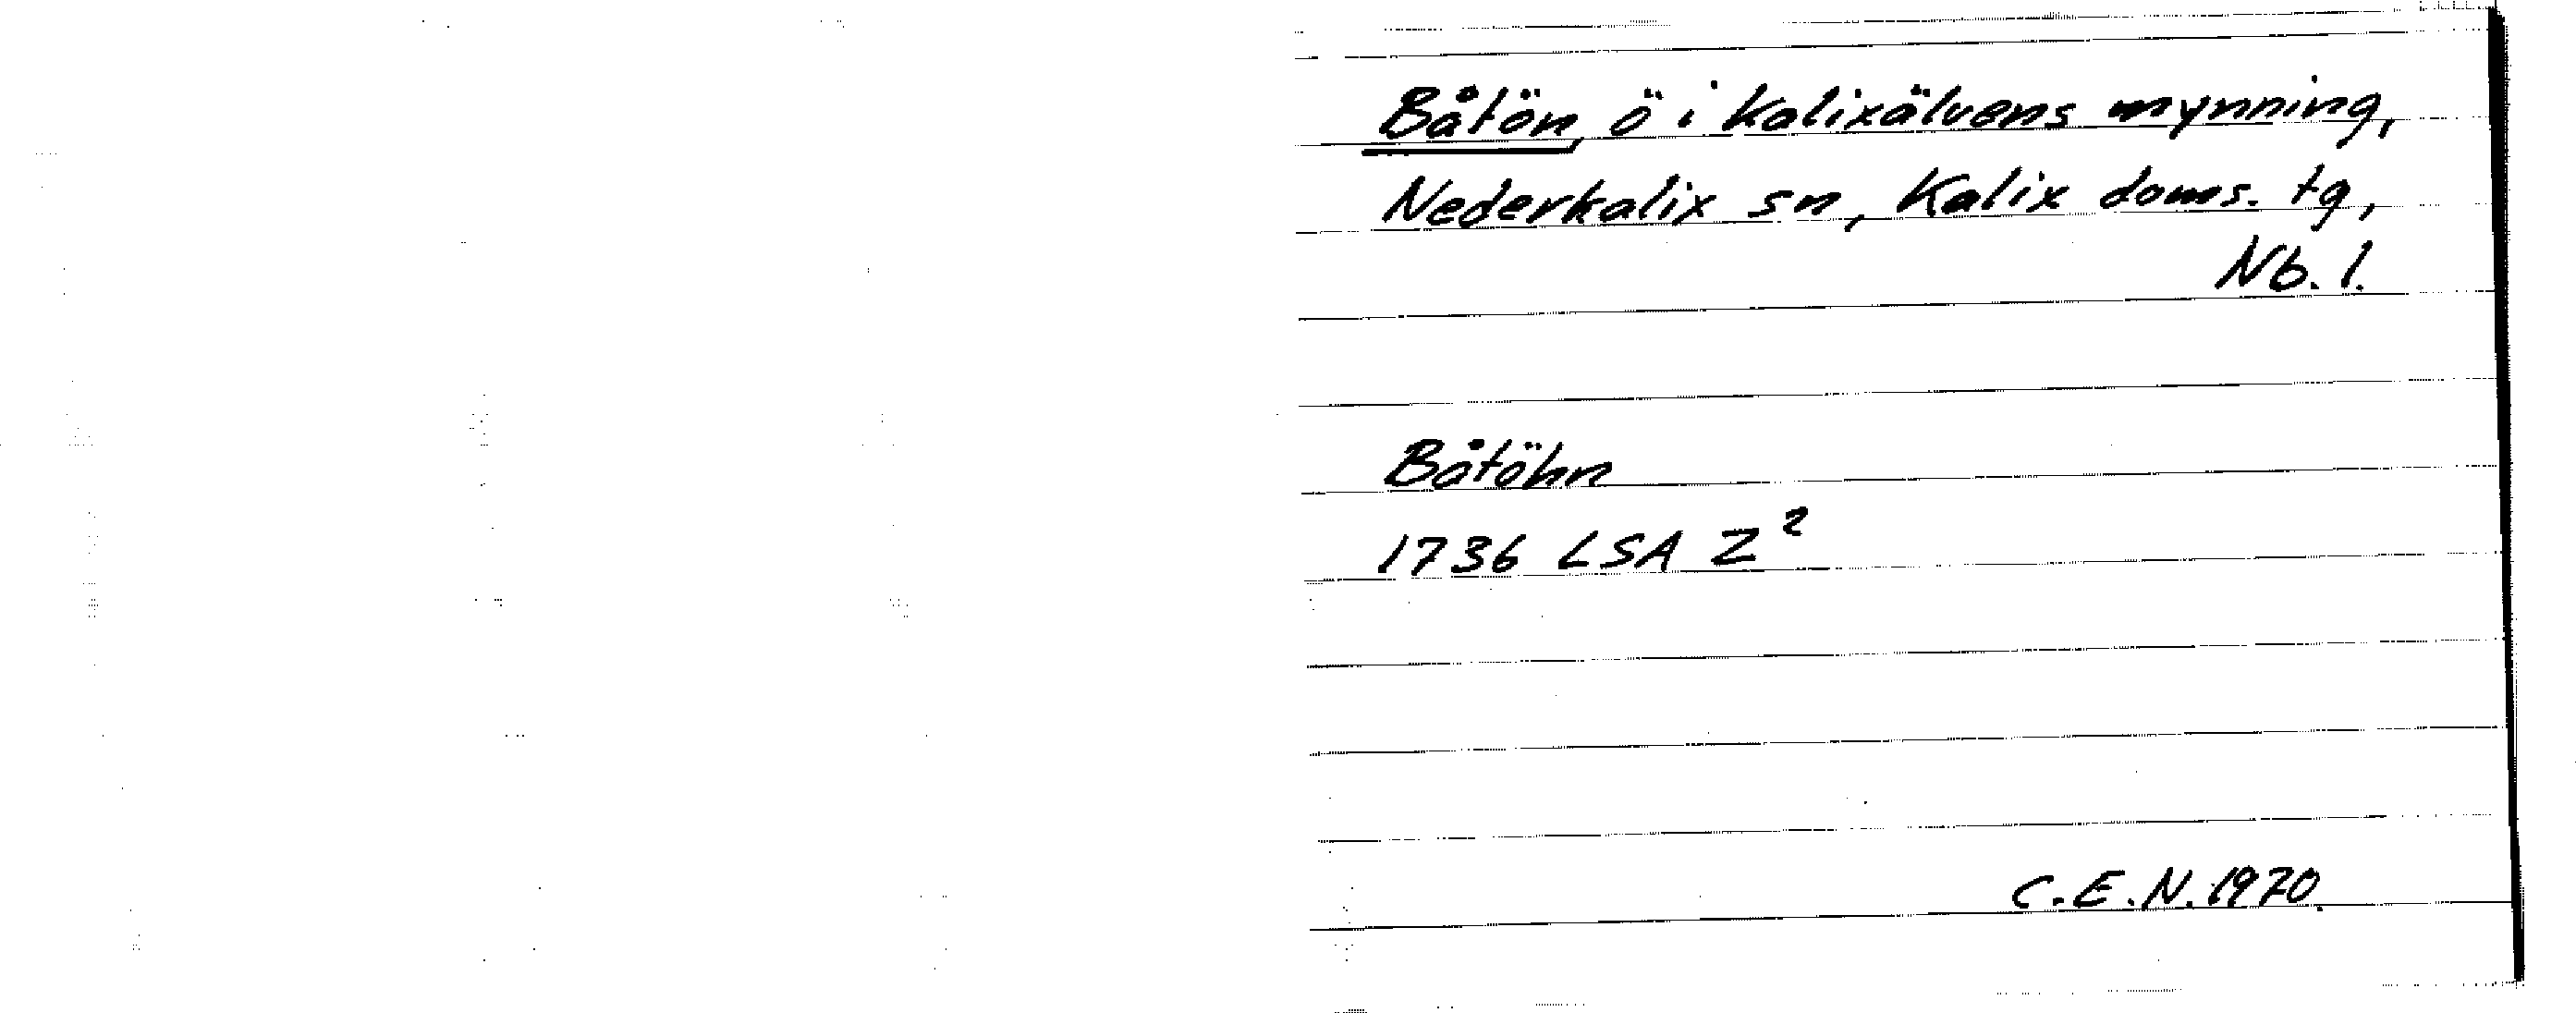 Båtön, ö i Kalixälvens mynning,
Nederkalix sn, Kalix doms. tg,
Nb. l.
Båtöhn
1736 LSA Z²
C.E.N. 1970.